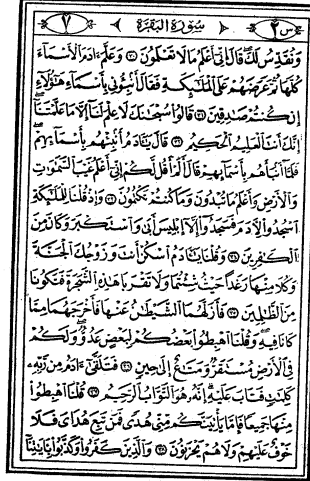 ٧ سورة البقرة س ٢
ونقدس لك قال إني أعلم ما لا تعلمون ٣٠ وعلم ءادم الأسماء
كلها ثم عرضهم على الملئكة فقال أنبئوني بأسماء هؤلاء
إن كنتم صدقين ٣١ قالوا سبحنك لا علم لنا إلا ما علمتنا
إنك أنت العليم الحكيم ٣٢ قال يئادم أنبئهم بأسمائهم
فلما أنبأهم بأسمائهم قال ألم أقل لكم إني أعلم غيب السموت
والأرض وأعلم ما تبدون وما كنتم تكتمون ٣٣ وإذ قلنا للملئكة
اسجدوا لأدم فسجدوا إلا إبليس أبى واستكبر وكان من
الكفرين ٣٤ وقلنا يئادم اسكن أنت وزوجك الجنة
وكلا منها رغدا حيث شئتما ولا تقربا هذه الشجرة فتكونا
من الظلمين ٣٥ فأزلهما الشيطن عنها فأخرجهما مما
كانا فيه وقلنا اهبطوا بعضكم لبعض عدو ولكم
في الأرض مستقر ومتع إلى حين ٣٦ فتلقى ءادم من ربه
كلمت فتاب عليه إنه هو التواب الرحيم ٣٧ قلنا اهبطوا
منها جميعا فإما يأتينكم مني هدى فمن تبع هداي فلا
خوف عليهم ولا هم يحزنون ٣٨ والذين كفروا وكذبوا بئايتنا